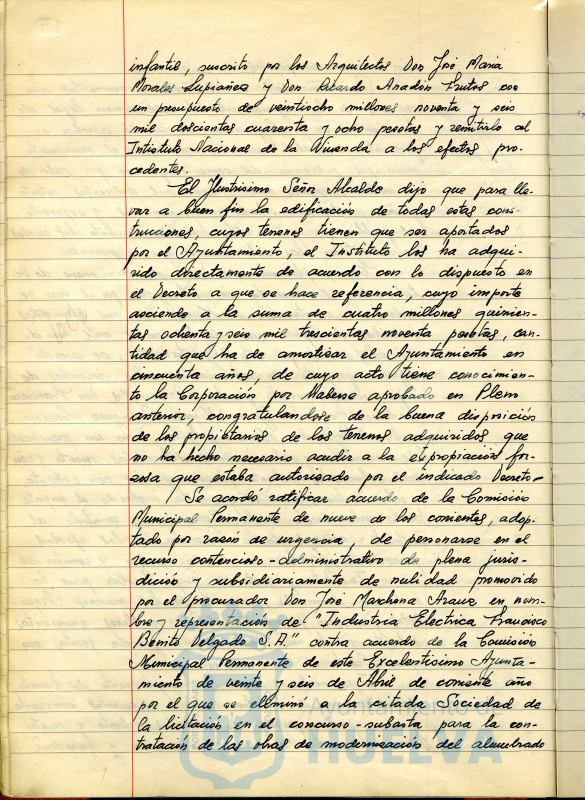 infantil, suscrito por los Arquitectos Don José Maria
Morales Lupiañez y Don Ricardo Anadón Frutos con
un presupuesto de veintiocho millones noventa y seis
mil doscientas cuarenta y ocho pesetas y remitirlo al
Intistuto Nacional de la Vivenda a los efectos pro-
cedentes.
El Ilustrisimo Señor Alcalde dijo que para lle-
var a buen fin la edificación de todas estás cons-
trucciones, cuyos terrenos tienen que ser aportados
por el Ayuntamiento, el Instituto los ha adqui-
rido directamente de acuerdo con lo dispuesto en
el Decreto a que se hace referencia, cuyo importe
asciende a la suma de cuatro millones quinien-
tas ochenta y seis mil trescientas noventa pesetas, can-
tidad que ha de amortizar el Ayuntamiento en
cincuenta años, de cuyo acto tiene conocimien-
to la Corporación por haberse aprobado en Pleno
anterior, congratulandose de la buena disposición
de los propietarios de los terrenos adquiridos que
no ha hecho necesario acudir a la expropiación for-
zosa que estaba autorizado por el indicado Decreto.-
Se acordó ratificar acuerdo de la Comisión
Municipal Permanente de nueve de los corrientes, adop-
tado por razón de urgencia, de personarse en el
recurso contencioso-administrativo de plena juris-
dicción y subsidiariamente de nulidad promovido
por el procurador Don José Marchena Arauz en nom-
bre y representación de "Industria Electrica Francisco
Benito Delgado S.A." contra acuerdo de la Comisión
Municipal Permanente de este Excelentisimo Ayunta-
miento de veinte y seis de Abril de corriente año
por el que se eliminó a la citada Sociedad de
la licitación en el concurso-subasta para la con-
tratación de las obras de modernización del alumbrado
Ayuntamiento de
HUELVA